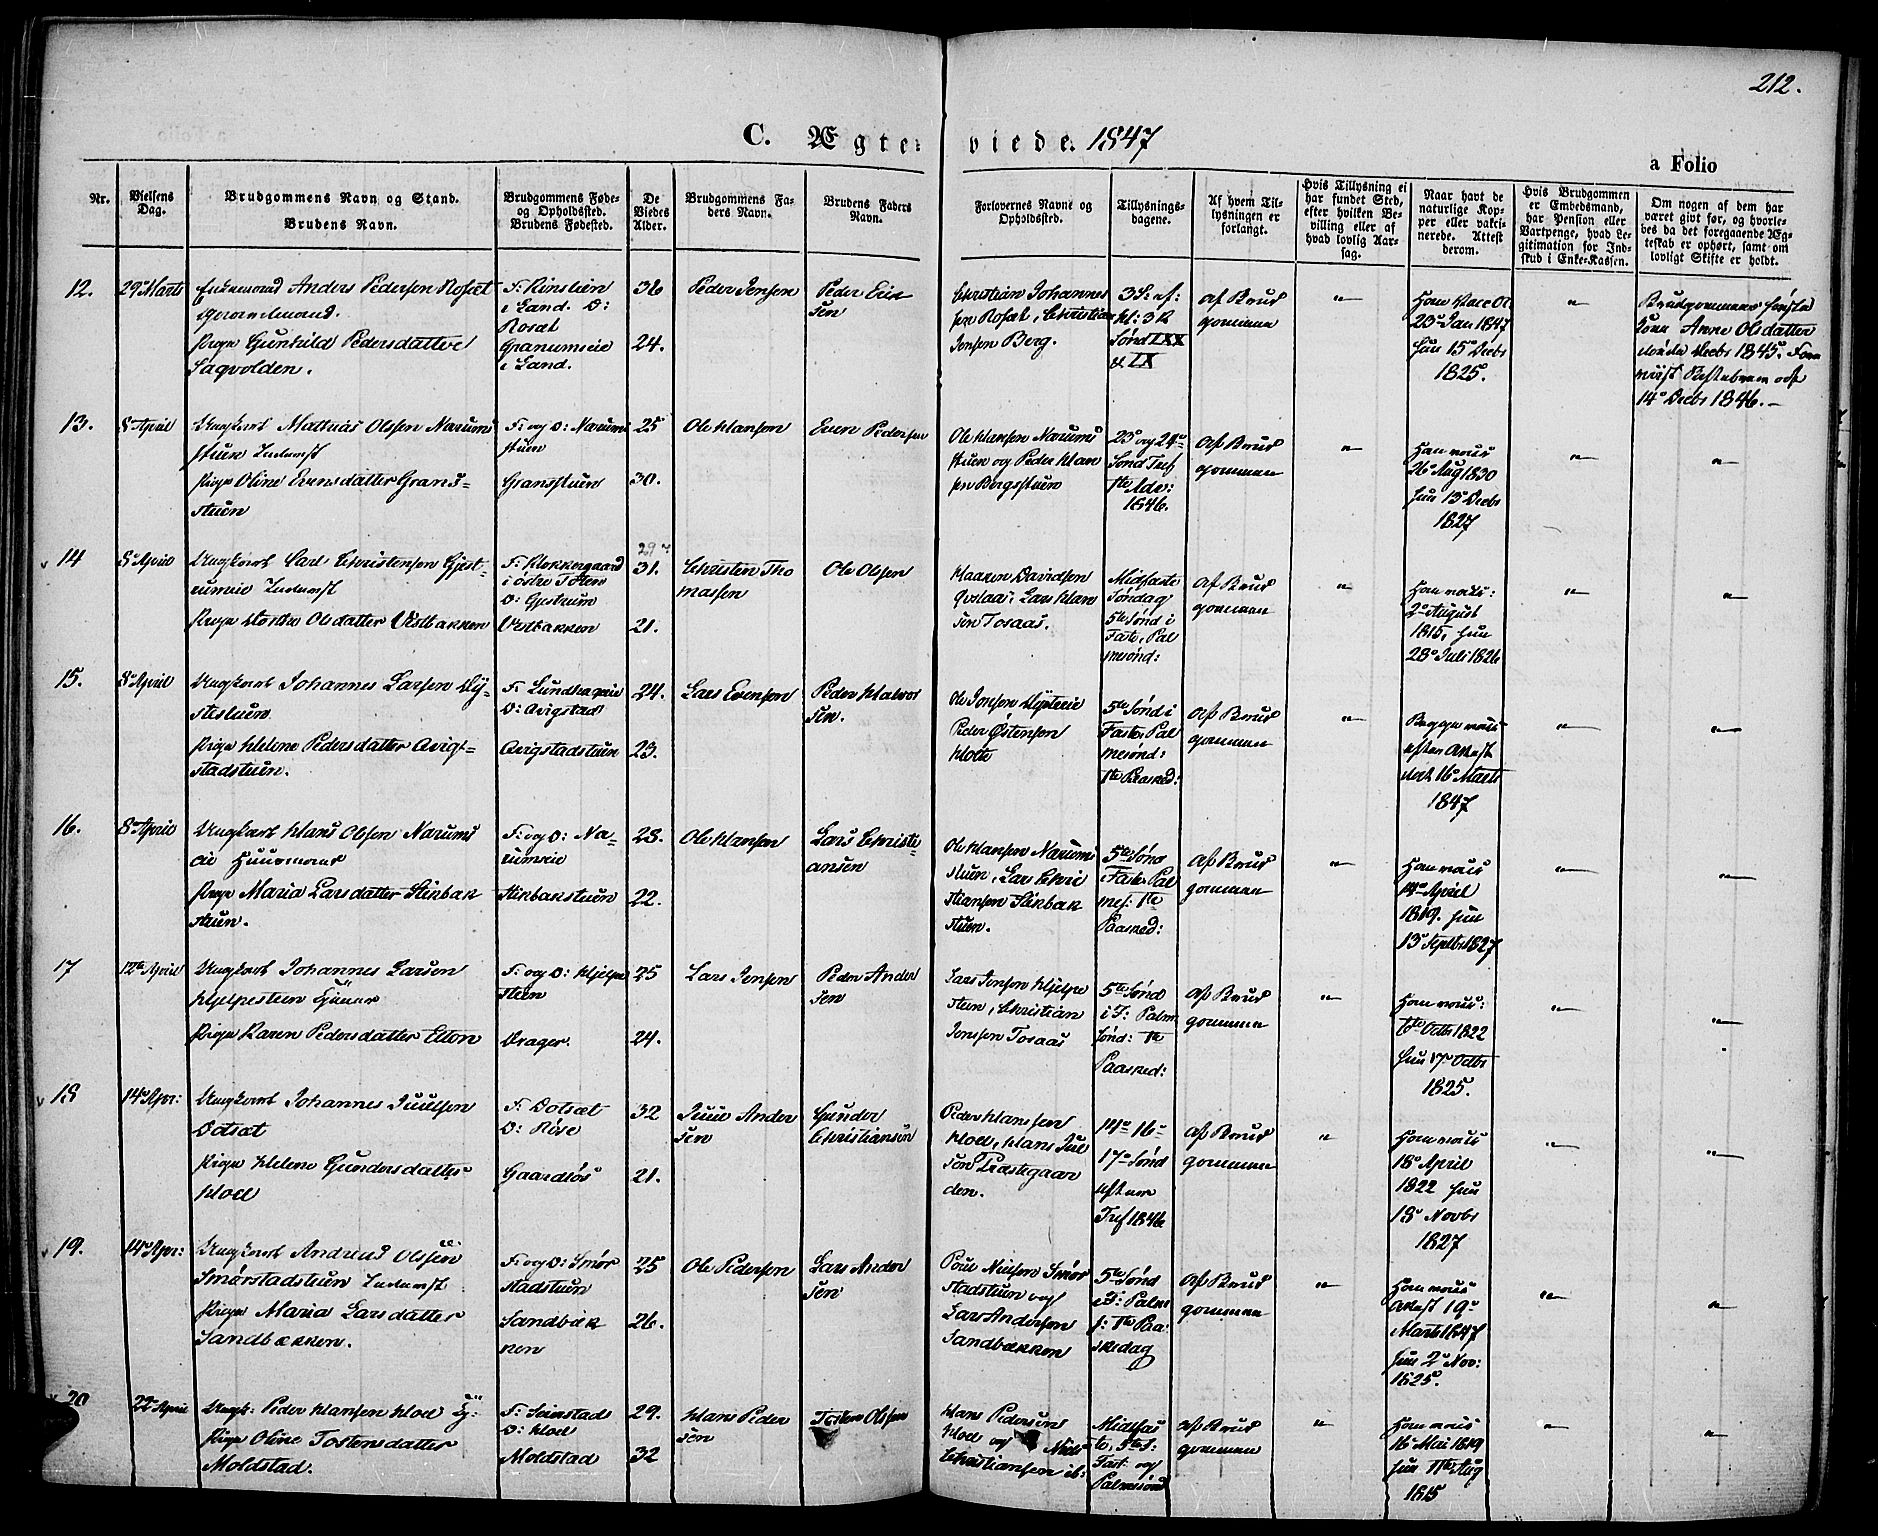 212.
C. Ægteviede. 1847
a Folio
Nr.
Vielsens Dag.
Brudgommens Navn og Stand.
Brudens Navn.
Brudgommens Føde-
og Opholdssted.
Brudens Fødested.
De
Viedes
Alder.
Brudgommens Fa-
ders Navn.
Brudens Faders
Navn.
Forlovernes Navne og
Opholdssted.
Tillysnings-
dagene.
Af hvem Til-
lysningen er
forlangt.
Hvis Tillysning ei
har fundet Sted,
efter hvilken Be-
villing eller af
hvad lovlig Aar-
sag.
Naar havt de
naturlige Kop-
per eller vakci-
nerede. Attest
derom.
Hvis Brudgommen
er Embedsmand,
har Pension eller
Vartpenge, hvad Le-
gitimation for Ind-
skud i Enke-Kassen.
Om nogen af dem har
været givt før, og hvorle-
bes da det foregaaende Æg-
teskab er ophørt, samt om
lovligt Skifte er holdt.
12.
29 Marts
Enkemand Anders Pedersen Rosæt
Pige Gunhild Pedersdatter
Sagvolden.
i Land. O:
Rosæt
Granumseie
i Land.
36
24.
Peder Jensen
Peder Erik
sen
Christian Johannes
sen Rosæt, Christian
Jensen Berg.
af Brud
gommen
"
23 Jan 1847
hun 15 Decbr
1825.
"
Anne Olsdatter
døde Decbr 1845.
14 Decbr 1846.-
13.
8 April
Ungkarl Mathias Olssen Narums
stuen Inderst
Pige Oline Evensdatter Grans-
stuen
F: og O: Narums
stuen
Gransstuen
25
30.
Ole Hansen
Even Pedersen
Ole Hansen Narums
stuen og Peder Han
sen Bergsstuen
23 og 24
Sønd Tref
1te Adv:
1846.
af Brud
gommen
"
Ham vacis
26 Aug 1830
hun 13 Decbr
1827
"
"
14
8 April
Ungkarl Carl Christensen Gjest-
rumeie Inderst
Pige Dorthe Olsdatter Vestbakken
F: Klokkergaard
i østre Toten
O: Gjestrum
Vestbakken
31.
21.
Christen Tho
massen
Ole Olsen
Haaken Davidsen
Lars Han
sen Tosaas.
Midfaste
Søndag
5te Sønd i
Faste, Pal
mesønd:
af Brud
gommen
"
Ham vacis:
2 August
1815, hun
28 Juli 1826
"
"
15.
8 April
Ungkarl Johannes Larsen Dy-
stestuen
Pige Helene Pedersdatter Avig-
stadstuen.
F: Lundhageie
O: Avigstad
Avigstadstuen
24.
23.
Lars Evensen
Peder Halvor
sen.
Ole Jonsen Dysteeie
Peder Østensen
Hoele
5te Sønd i
Faste, Pal
mesønd:
1te Paasked:
af Brud
gommen
"
Begge vacis
efter Attest
dat 16 Marts
1847
"
"
16.
8 April
Ungkarl Hans Olsen Narums
eie Huusmand
Pige Maria Larsdatter Stikbak
stuen.
F: og O: Na-
rumseie
Stikbakstuen
23.
22.
Ole Hansen
Lars Christi-
ansen
Ole Hansen Narums
stuen, Lars Chri
stiansen Stikbak
stuen.
5te Sønd
i Faste, Pal
mes: 1te
Paasked:
af Brud
gommen
"
Ham vacis
14 April
1819. hun
13 Septbr 1827
"
"
17
12te April
Ungkarl Johannes Larsen
Hjelpesteen
Pige Karen Pedersdatter Elton
F: og O: Hjelpe
steen
Krager.
25
24.
Lars Jensen
Peder Ander
sen
Lars Jensen Hjelpe
steen, Christian
Jenssen Tosaas
5te Sønd
i F: Palm
sønd: 1te
Paasked:
af Brud
gommen
"
Ham vacis:
6te Octbr 1822
hun 17 Octbr
1825.
"
"
18
14 Apr:
Ungkarl Johannes Juulsen
Dotsæt
Pige Helene Gundersdatter
Hoel
F: Dotsæt
O: Røse
Gaardløs
32
21.
Juul Ander
sen
Gunder
Christiansen
Peder Hanssen
Hoel, Hans Juul
sen Præstegaar
den.
14 16
17 Sønd
efter
Tref 1846
af Brud
gommen
"
Ham vacis
18 April
1822 hun
18 Novbr
1827
"
"
19.
14 Apr:
Ungkarl Andreas Olssen
Smørstadstuen Inderst
Pige Maria Larsdatter
Sandbækken.
F: og O: Smør
stadstuen
Sandbæk
ken
25
26.
Ole Pedersen
Lars Ander
sen
Poul Nielsen Smør
stadstuen og
Lars Andersen
Sandbækken
5te Sønd
i F: Palm
s: 1te Paa-
skedag
af Brud
gommen
"
Ham vacis
Attest 19
Marts 1847
hun 2 Nov:
1825.
"
"
20
22 April
Ungk: Peder Hansen Hoel
Pige Oline Tostensdatter
Moldstad.
F: Seierstad
O: Hoel
Moldstad
29.
32
Hans Peder
sen
Tosten Olssen
Hans Pedersen
Hoel og Niels
Christiansen ib:
Midtfas
te, 5te S:
Fast: og
Palmesønd
af Brud
gommen
"
Ham vacis
16 Mai 1819
hun 11te Aug
1815
"
"